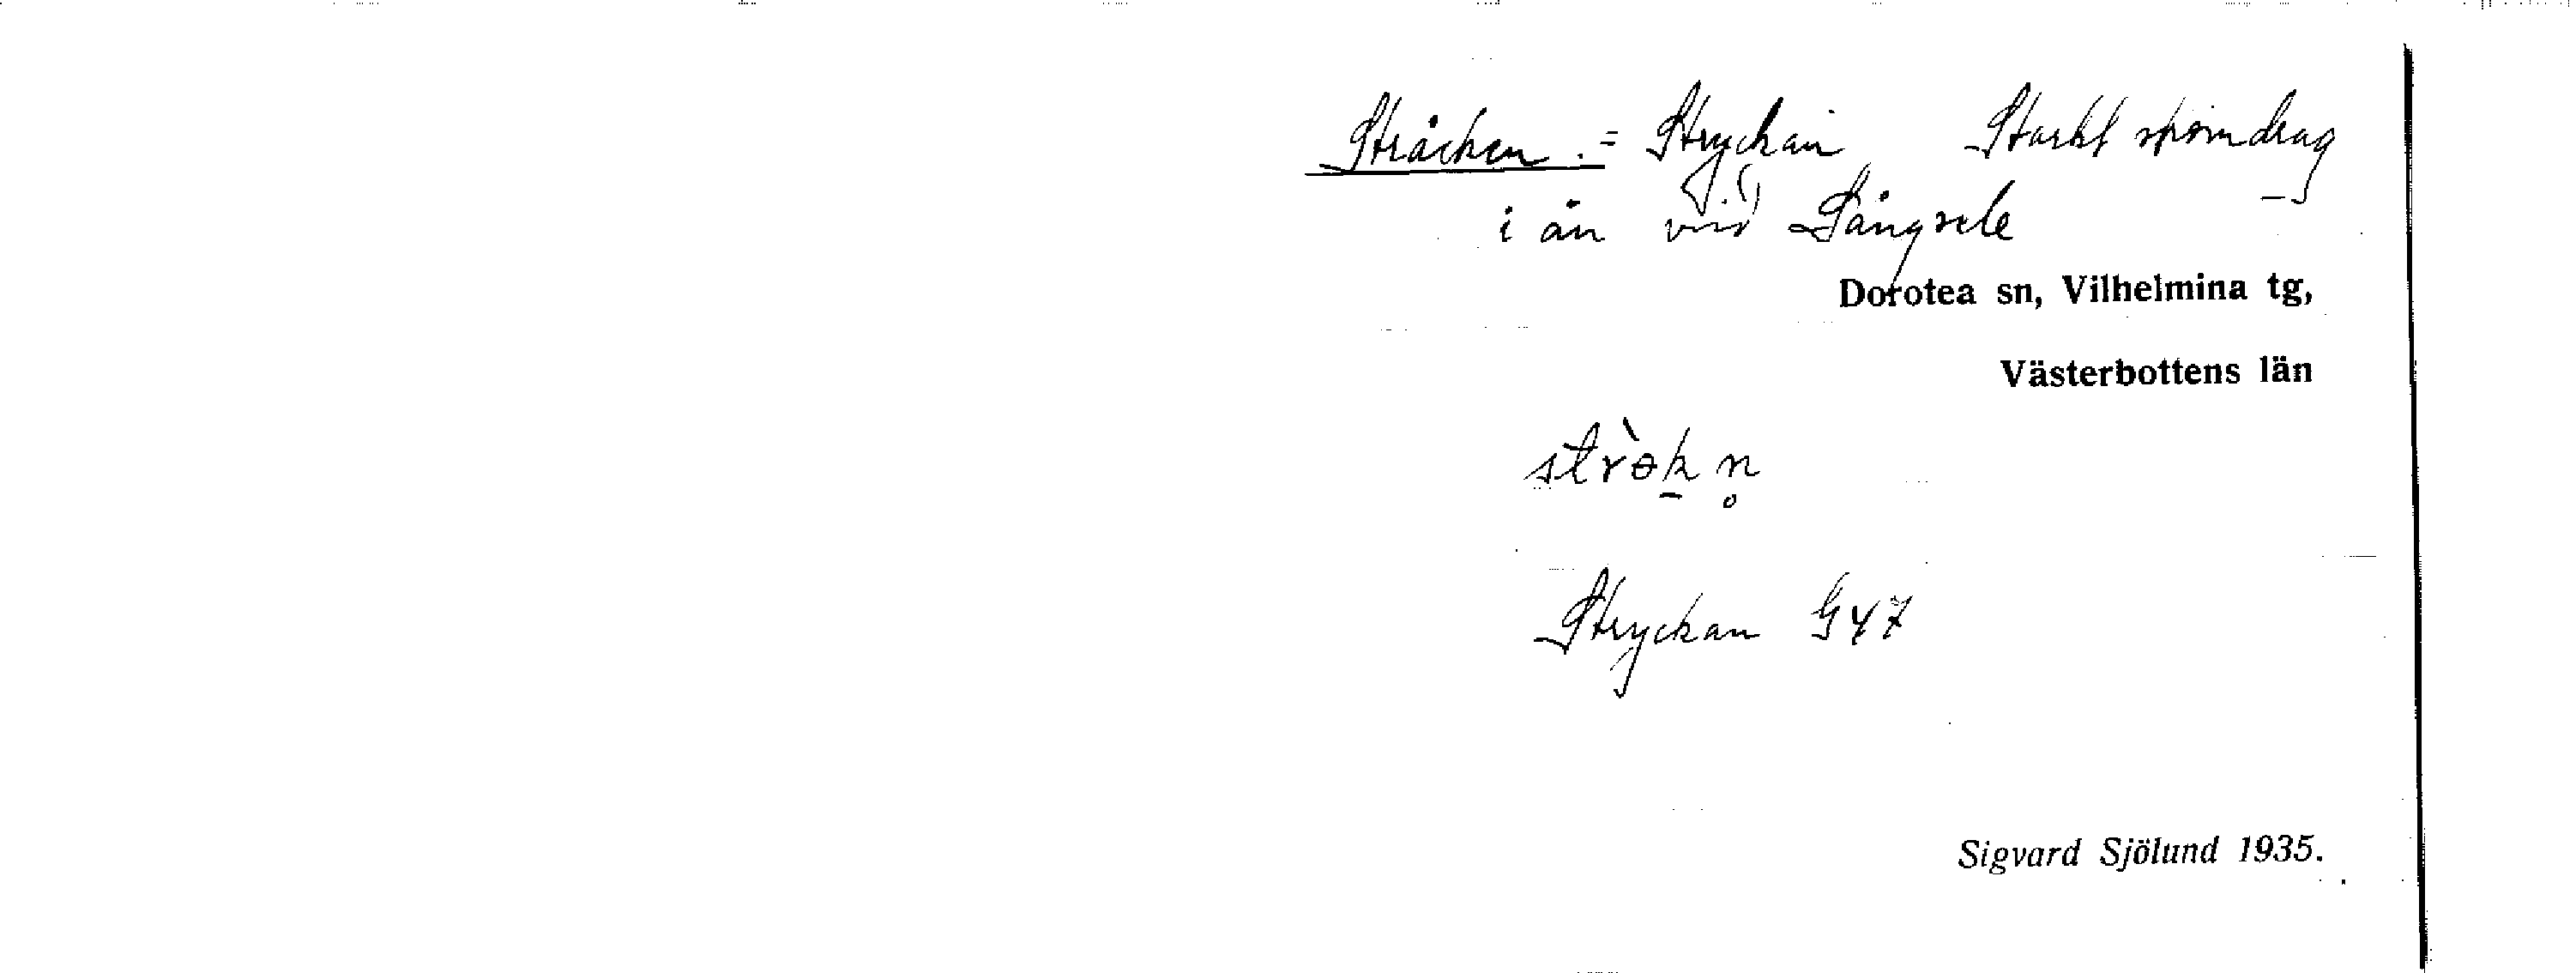 Stråcken. = Stryckan Starkt strömdrag
i ån vid Långsele
Dorotea sn, Vilhelmina tg,
Västerbottens län
strɵ̀k̠ n̥
Stryckan G47
Sigvard Sjölund 1935.